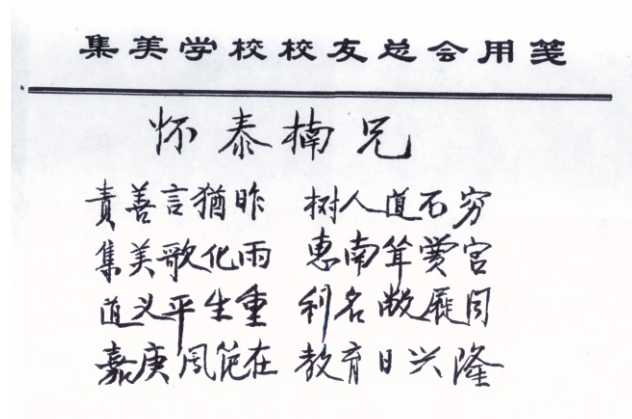 集美学校校友总会用笺
怀泰楠兄
責善言猶昨 树人道不穷
集美歌化雨 惠南耸黉宫
道义平生重 利名敝屣同
嘉庚风范在 教育日兴隆